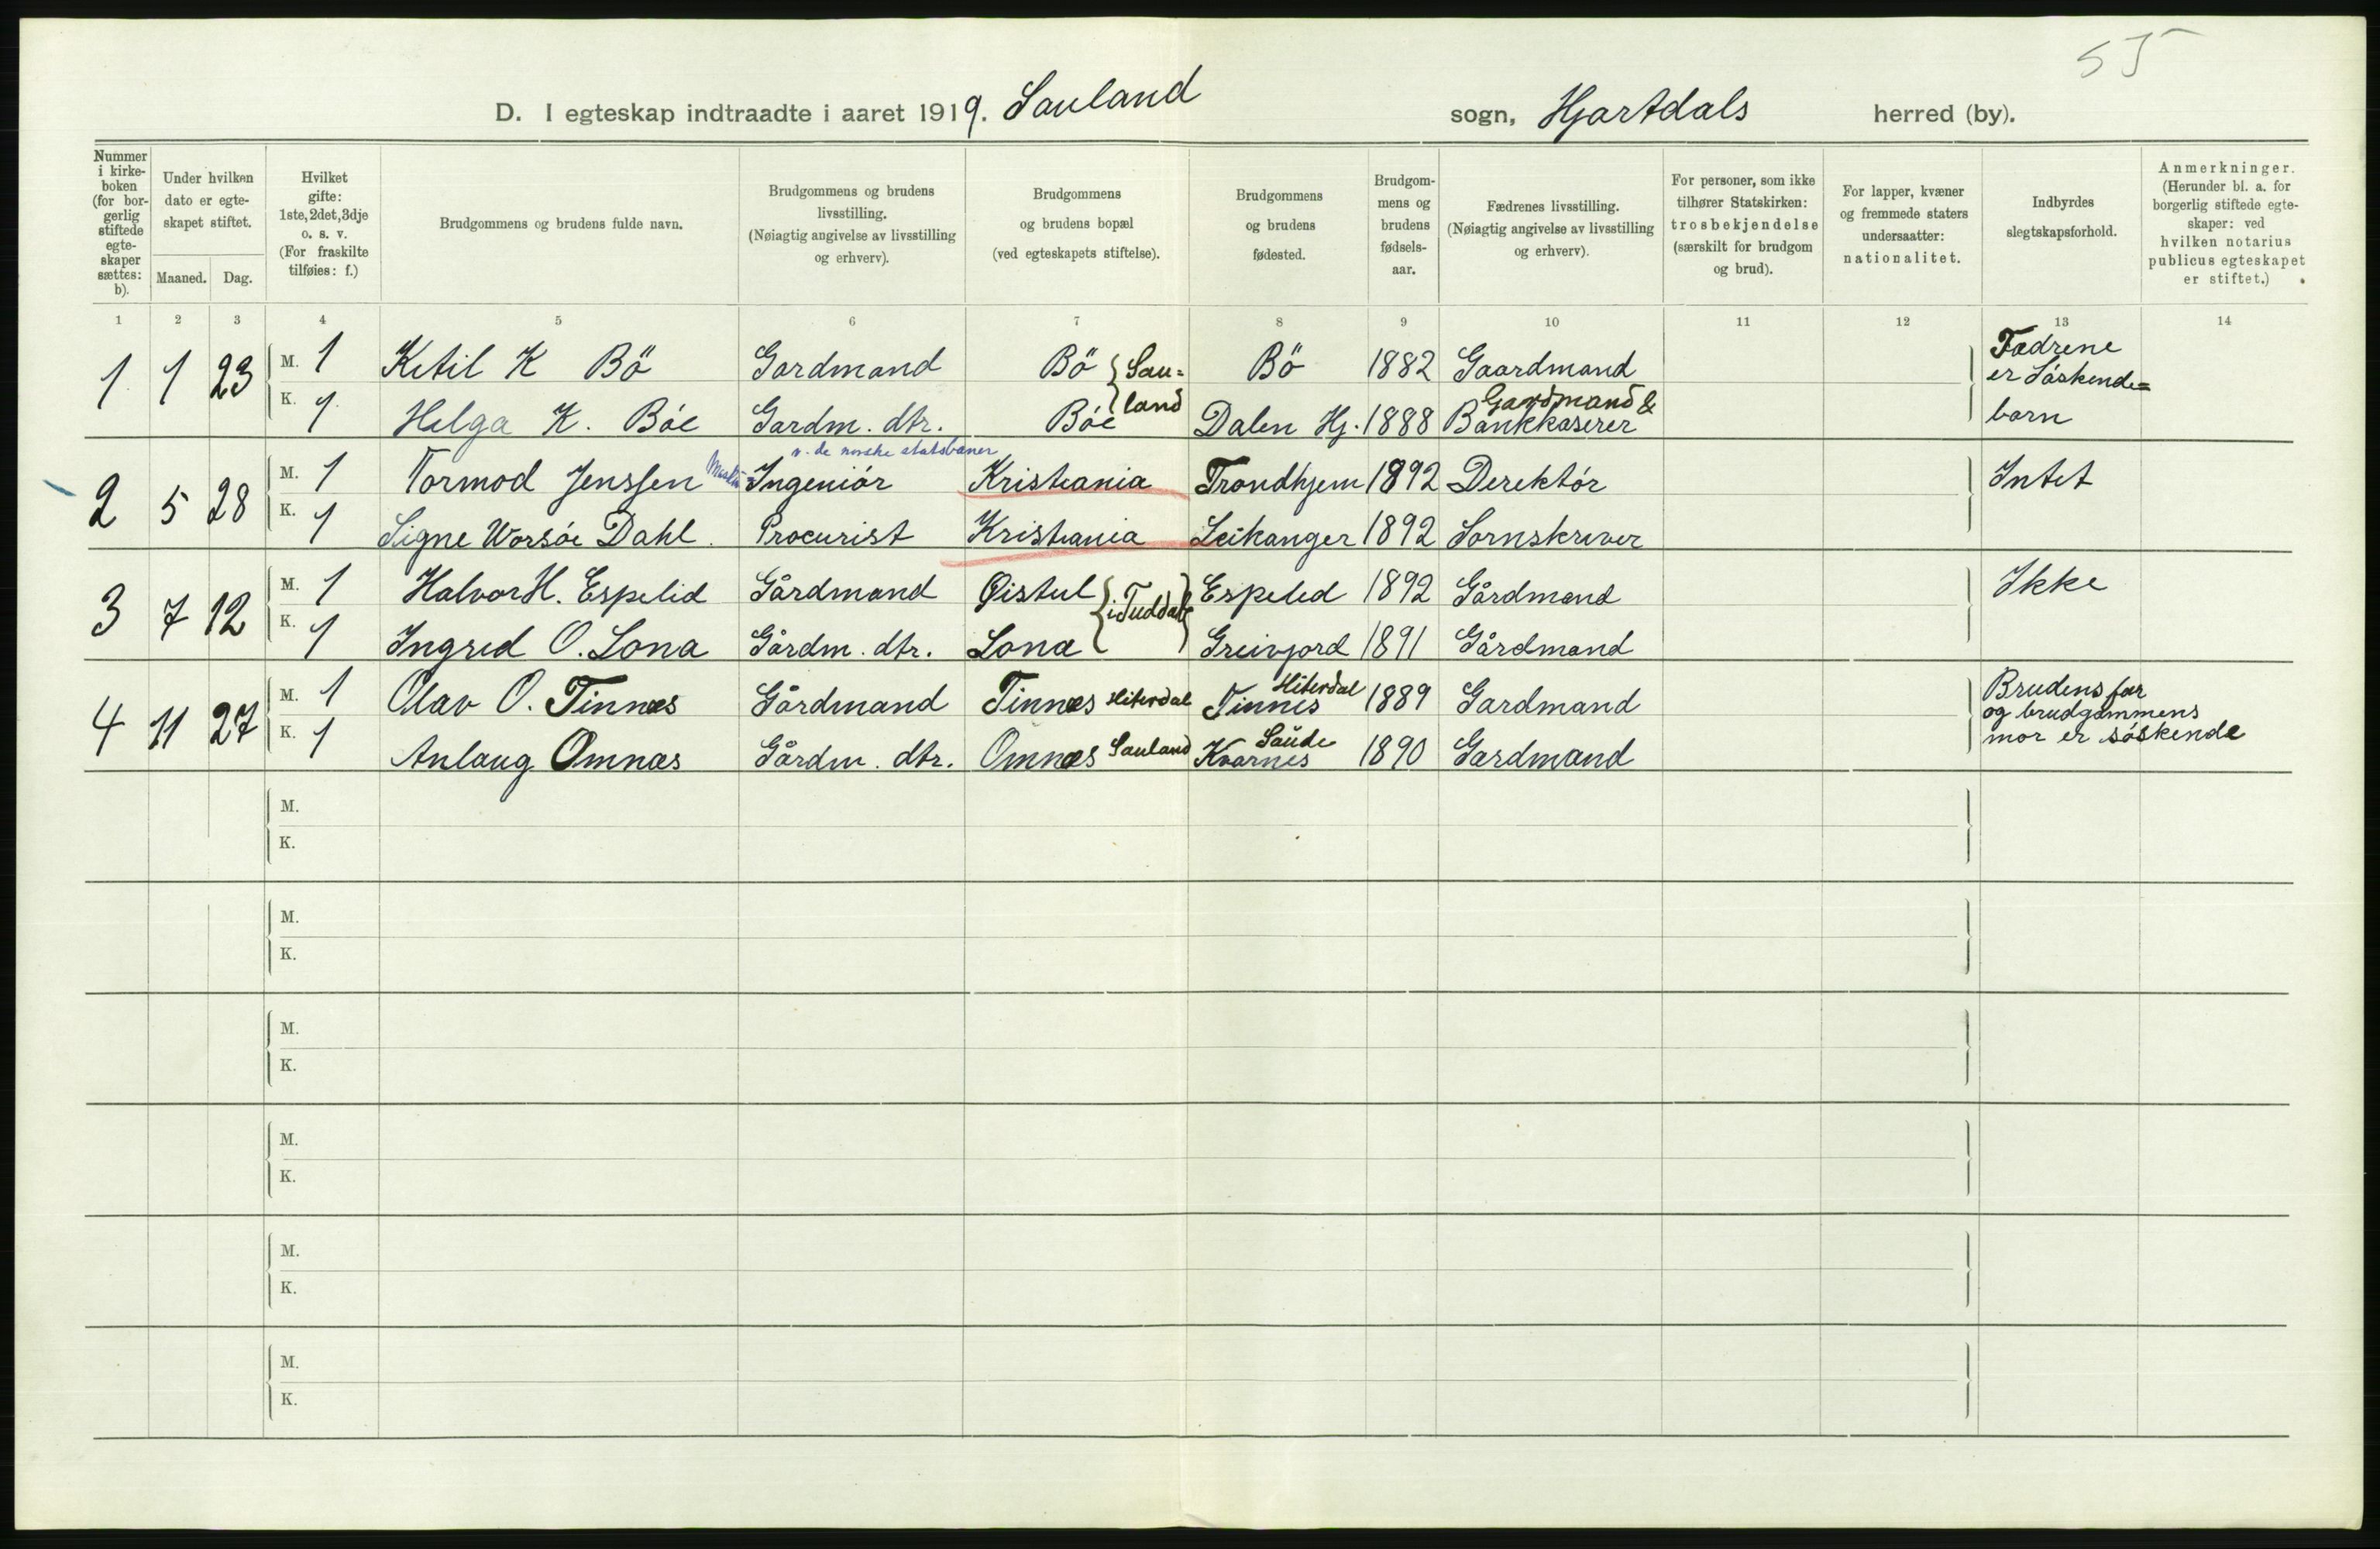 55
D. I egteskap indtraadte i aaret 1919. Sauland sogn, Hjartdals herred (by).
Nummer i kirke-boken (for bor-gerlig stiftede egte-skaper sættes: b).
Under hvilken dato er egte-skapet stiftet.
Maaned. Dag.
Hvilket gifte: 1ste, 2det, 3dje o. s. v. (For fraskilte tilføies: f.)
Brudgommens og brudens fulde navn.
Brudgommens og brudens livsstilling. (Nøiagtig angivelse av livsstilling og erhverv).
Brudgommens og brudens bopæl (ved egteskapets stiftelse).
Brudgommens og brudens fødested.
Brudgom-mens og brudens fødsels-aar.
Fædrenes livsstilling. (Nøiagtig angivelse av livsstilling og erhverv).
For personer, som ikke tilhører Statskirken: trosbekjendelse (særskilt for brudgom og brud).
For lapper, kvæner og fremmede staters undersaatter: nationalitet.
Indbyrdes slegtskapsforhold.
Anmerkninger. (Herunder bl. a. for borgerlig stiftede egte-skaper: ved hvilken notarius publicus egteskapet er stiftet.)
1 2 3 4 5 6 7 8 9 10 11 12 13 14
1 1 23 M. 1 Ketil K Bö Gardmand Bö } Sau= Bö 1882 Gaardmand Fædrene er Søskende=
K. 1 Helga K. Böe Gardm. dtr. Böe land Dalen Hj. 1888 Gardmand & Bankkaserer barn
v. de norske statsbaner
2 5 28 M. 1 Tormod Jenssen Maskin Ingeniör Kristiania Trondhjem 1892 Derektör Intet
K. 1 Signe Worsöe Dahl. Procurist Kristiania Leikanger 1892 Sornskriver
3 7 12 M. 1 Halvor H. Espelid Gårdmand Øistul { i Tuddal } Espelid 1892 Gårdmand Ikke
K. 1 Ingrid O. Lona Gårdm. dtr. Lona Greivjord 1891 Gårdmand
4 11 27 M. 1 Olav O. Tinnes Gårdmand Tinnes Hiterdal Tinnes Hiterdal 1889 Gardmand Brudens far og brudgommens
K. 1 Anlaug Omnæs Gårdm. dtr. Omnæs Sauland Kvarnes Saude 1890 Gardmand mor er søskende
M.
K.
M.
K.
M.
K.
M.
K.
M.
K.
M.
K.